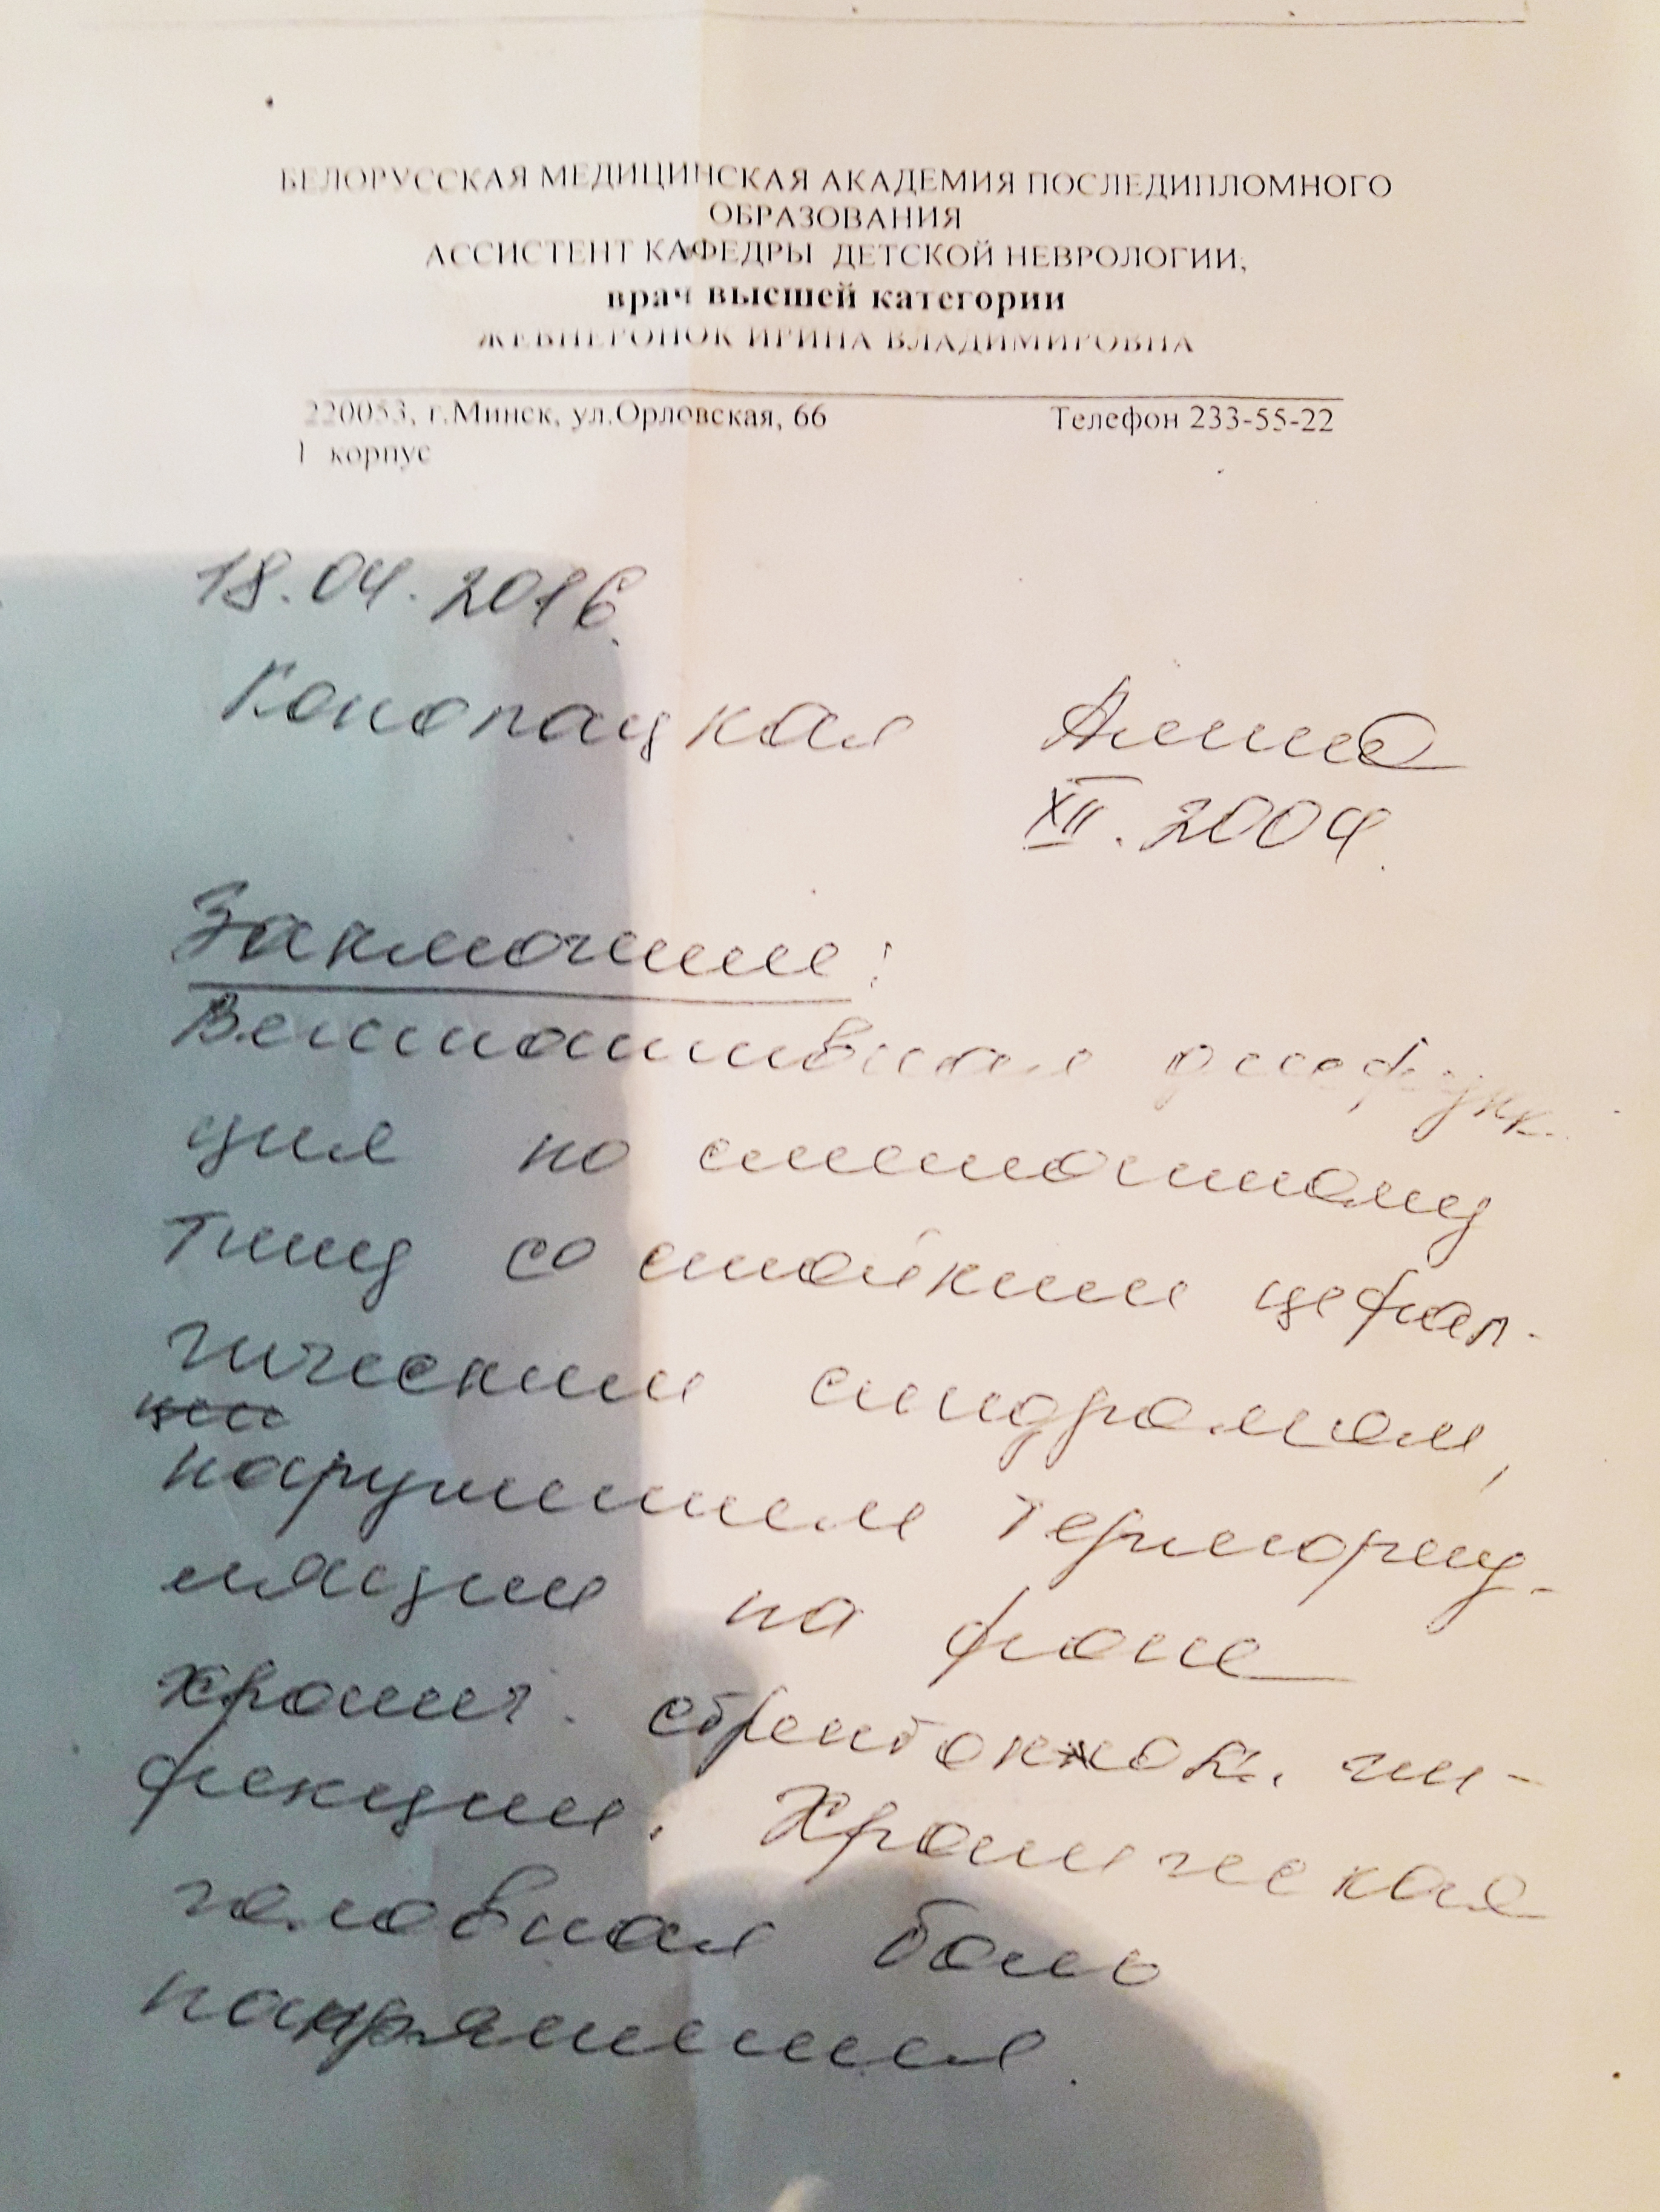 БЕЛОРУССКАЯ МЕДИЦИНСКАЯ АКАДЕМИЯ ПОСЛЕДИПЛОМНОГО
ОБРАЗОВАНИЯ
АССИСТЕНТ КАФЕДРЫ ДЕТСКОЙ НЕВРОЛОГИИ,
врач высшей категории
ЖЕВНЕРОНОК ИРИНА ВЛАДИМИРОВНА
220053, г.Минск, ул.Орловская, 66 Телефон 233-55-22
1 корпус
18.04.2016.
Конопацкая
XII.2004.
Заключение:
Вегетативная дисфунк-
ция по смешанному
типу со стойким цефал-
гическим синдромом,
нарушением терморегу-
ляции на фоне
хронич. стрептококк. ин-
фекции. Хроническая
головная боль
напряжения.